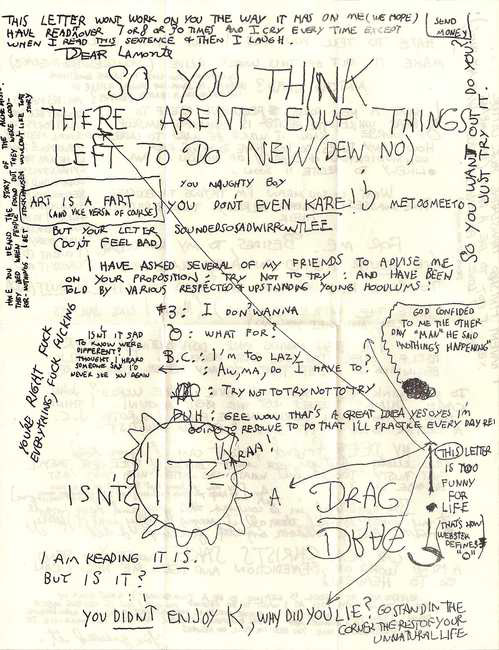 THIS LETTER WONT WORK ON YOU THE WAY IT HAS ON ME (WE HOPE)
HAVE READ IT OVER 7 OR 8 OR 30 TIMES AND I CRY EVERY TIME EXCEPT
WHEN I READ THIS SENTENCE & THEN I LAUGH.
SEND
MONEY
DEAR LAMONTE
SO YOU THINK
THERE ARENT ENUF THINGS
LEFT TO DO NEW (DEW NO)
SO YOU WANT OUT DO YOU?
JUST TRY IT.
HAVE YOU HEARD THE STORY OF THE
THEY DIED WHEN PEOPLE FOUND OUT THEY WERE GOOD
FOR NOTHING. I HEAR STOCKHAUSEN WOULDN'T LIKE THAT
STORY
ART IS A FART
(AND VICE VERSA OF COURSE)
YOU NAUGHTY BOY
YOU DON'T EVEN KARE! METOOMEETO
BUT YOUR LETTER
(DON'T FEEL BAD)
SOUNDEDSOSADWIRRONTLEE
I HAVE ASKED SEVERAL OF MY FRIENDS TO ADVISE ME
ON YOUR PROPOSITION: TRY NOT TO TRY: AND HAVE BEEN
TOLD BY VARIOUS RESPECTED & UPSTANDING YOUNG HOODLUMS:
#3: I DON'T WANNA
O: WHAT FOR?
B.C.: I'M TOO LAZY
: AW, MA, DO I HAVE TO?
: TRY NOT TO TRY NOT TO TRY
DUH: GEE WOW THAT'S A GREAT IDEA YESOYES I'M
GOING TO RESOLVE TO DO THAT I'LL PRACTICE EVERY DAY REI
ISN'T IT SAD
TO KNOW WE'RE
DIFFERENT? I
THOUGHT I HEARD
SOMEONE SAY I'D
NEVER SEE YOU AGAIN
YOU'RE RIGHT FUCK
EVERYTHING, FUCK FUCKING
GOD CONFIDED
TO ME THE OTHER
DAY "MAN" HE SAID
"NOTHING'S HAPPENING"
TARAA!
ISN'T IT A DRAG
DRAG
THIS LETTER
IS TOO
FUNNY
FOR
LIFE
(THAT'S HOW
WEBSTER
DEFINES
"O")
I AM READING IT IS.
BUT IS IT?
YOU DIDNT ENJOY K, WHY DID YOU LIE? GO STAND IN THE
CORNER THE REST OF YOUR
UNNATURAL LIFE